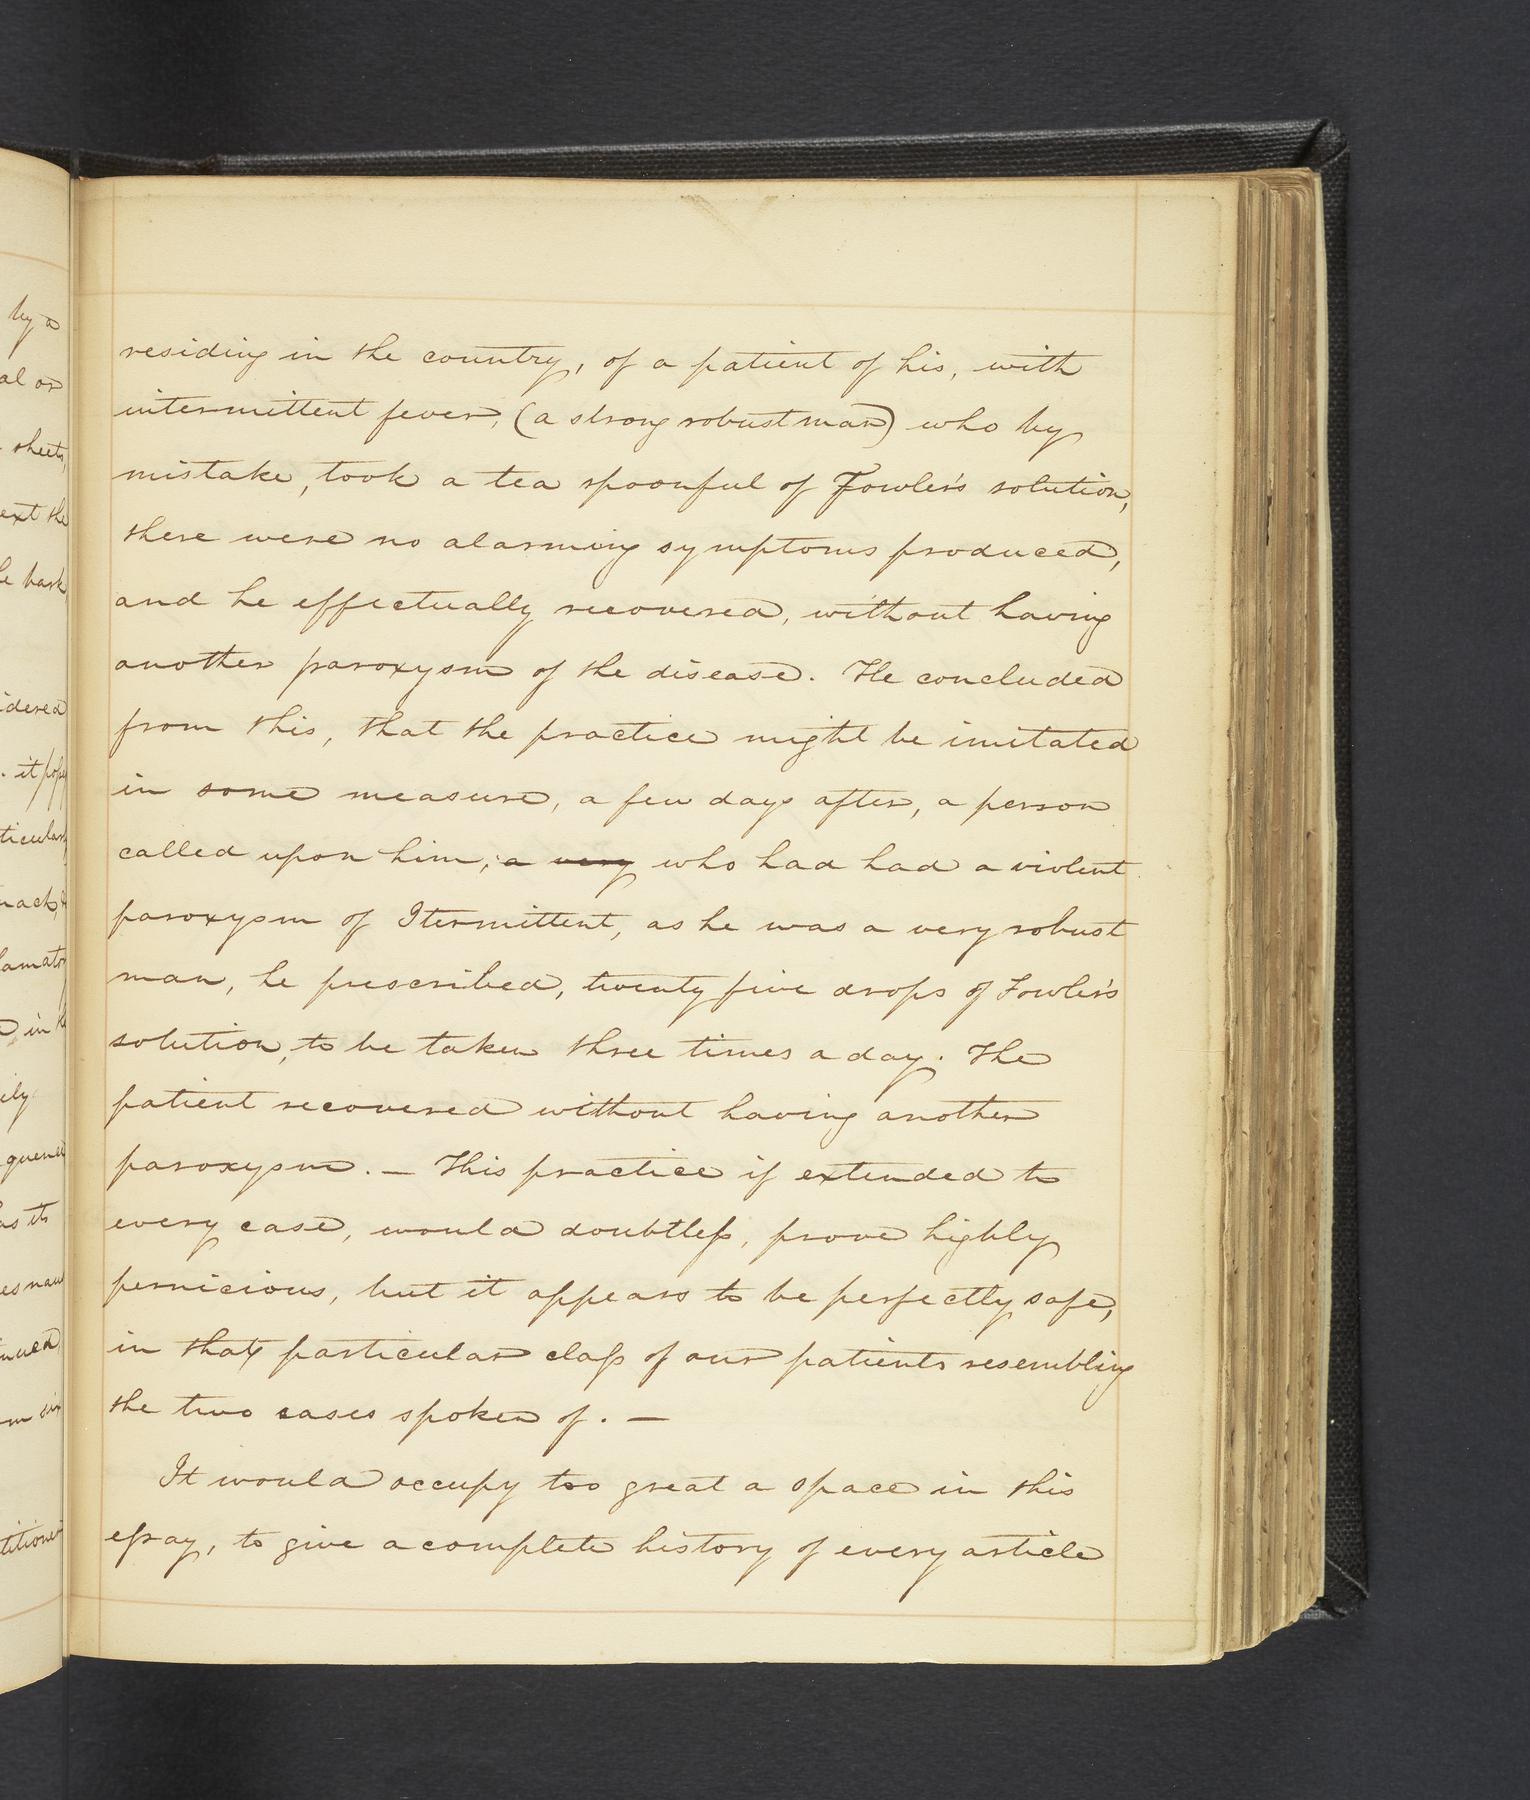 by a
al or
sheets,
ext the
he bark
idered
. it poss
ticular
mach,
lamator
in the
ily
quence
as its
tinued
titioner
residing in the country, of a patient of his, with
intermittent fever, (a strong robust man) who by
mistake, took a tea spoonful of Fowler's solution,
there were no alarming symptoms produced,
and he effectually recovered, without having
another paroxysm of the disease. He concluded
from this, that the practice might be imitated
in some measure, a few days after, a person
called upon him, a very who had had a violent
paroxysm of Itermittent, as he was a very robust
man, he prescribed, twenty five drops of Fowler's
solution, to be taken three times a day. The
patient recovered without having another
paroxysm. — This practice if extended to
every case, would doubtless, prove highly
pernicious, but it appears to be perfectly safe,
in that particular class of our patients resembling
the two cases spoken of. —
It would occupy too great a space in this
essay, to give a complete history of every article